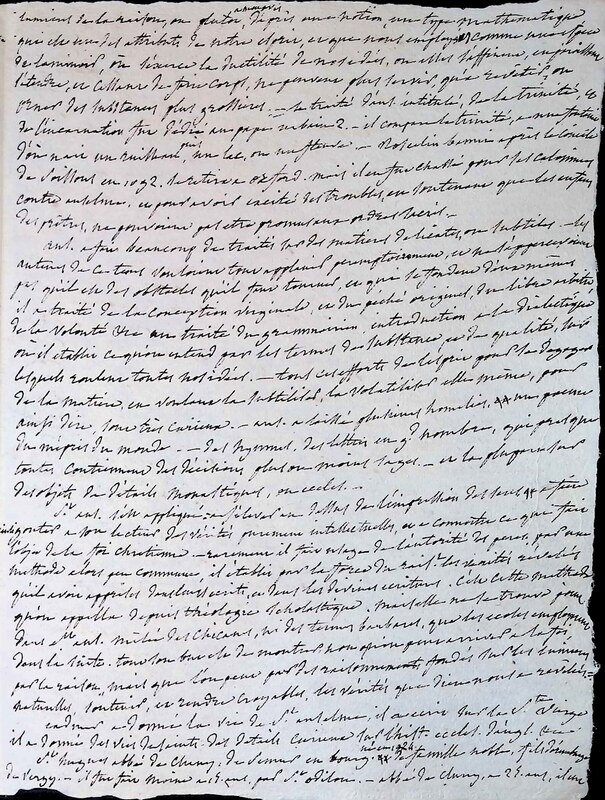 lumiere de la raison, ou plutot, d'après une notion, un type mathématique
que de un des attributs de notre ame, ce que nous employons comme une espece
de laminoir, ou s'exerce la ductilité de nos idées, ou elles s'affinent, en
l'étendre, et cessant de faire corps, ne peuvent plus servir, qu'a revêtir, ou
orner des substances plus grossières. — le traité dans intitulé, de la trinité, et
de l'incarnation fut dédié au pape urbain 2. — il compare la trinité, a une fontaine
d'où nait un ruisseau, puis un lac, ou un fleuve. — Roscelin banni après le concile
de Soissons en 1092. se retire a oxford. mais il en fut chassé pour ses calomnies
contre anselme, et pour avoir excité des troubles, en soutenant que les enfans
des prêtres, ne pouvaient pas etre promus aux ordres sacrés. —
ans. a fait beaucoup de traités sur des matieres délicates, ou subtiles. — les
auteurs de ce tems vouloient tout applanir, et ne s'appercevoient
pas qu'il est des obstacles qu'il faut tourner, et qui se fondent d'eux mêmes
il a traité de la conception virginale, et du peché originel, du libre arbitre
de la volonté &ca un traité du grammairien, introduction a la dialectique
où il établit ce qu'on entend par les termes de substance, et de qualité, sur
lesquels roulent toutes nos idées. — tous ces efforts de l'esprit pour se dégager
de la matiere, en voulant la subtiliser, la volatiliser elle même, pour
ainsi dire, sont très curieux. — ans. a laissé plusieurs homelies, un poeme
du mépris du monde. — des hymnes, des lettres en gd nombre, qui presque
toutes contiennent des décisions plus ou moins sages. — et la plupart sur
des objets de détails monastiques, ou eccles. —
St. ans. s'est appliqué a s'élever au dessus de l'impression des sens a faire
gouter a son lecteur des vérités purement intellectuelles, et a connoitre ce que fait
l'objet de la foi chretienne. — rarement il fait usage de l'autorité des peres, par une
methode alors peu commune, il établit par la force du rais.t les vérités révélées
qu'il avoit apprises dans leurs écrits, et dans les divines ecritures. C'est cette methode
qu'on appella depuis théologie scholastique. mais elle ne se trouve point
dans ans. mêlée des chicanes, ni des termes barbares, que les ecoles employerent
dans la suite. tout son but est de montrer non qu'on peut arriver a la foi,
par la raison, mais que l'on peut par des raisonnements fondés sur les lumieres
naturelles, soutenir, et rendre croyables, les vérités que dieu nous a révélées —
eadmer a donné la vie de St. anselme, il a ecrit sur la Ste. vierge
il a donné des vies de saints. des détails curieux sur l'hist. eccles. d'angl. &ca
St. hugues abbé de cluny, de semur en bourg. né en 1024 de famille noble, fils
de vergy. — il fut fait moine a 15 ans, par St. odilon. — abbé de cluny, a 25 ans, il eut